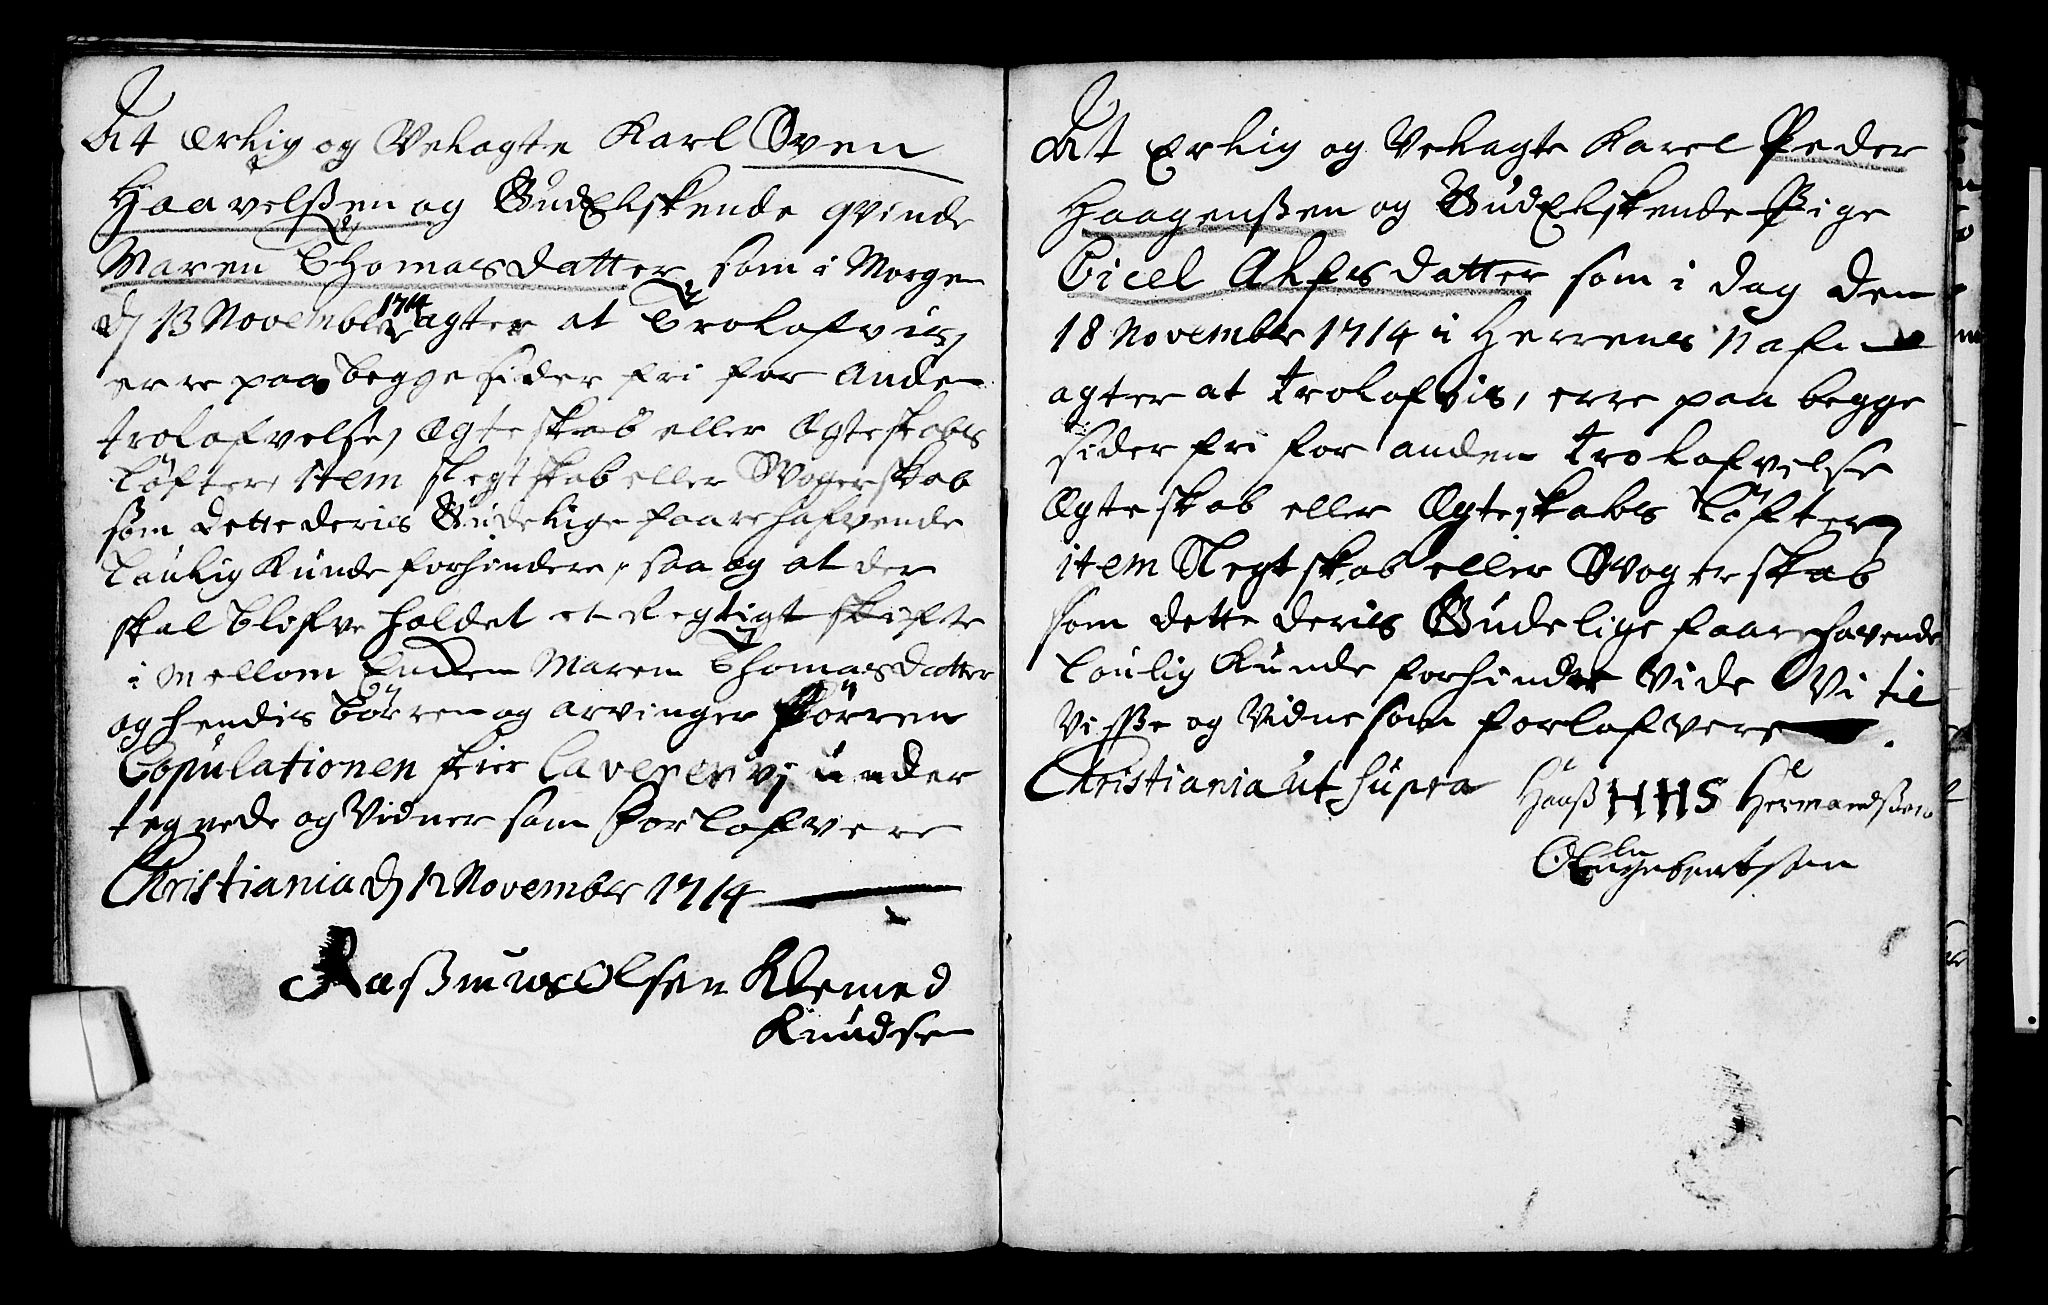 At ærlig og Velagte Karl Sven
Haavelßen og GudElskende qvinde
Maren Thomasdatter som i Morgen
d 13 Novembr 1714 agter at Trolofvis,
erre paa begge sider fri for anden
trolofvelse, Ægteskab eller Ægteskabs
Løfter, item Slegtskab eller Svogerskab
som dette deris Gudelige faarehafvende
Loulig kunde forhindre, saa og at der
skal blifve holdet et Rigtigt skifte
i mellom Enken Maren Thomasdatter
og hendis Børren og arvinger Førren
Copulationen skier Caverer vi under
tegnede og Vidner som Forlofvere
Christiania d 12 Novembr 1714
Raßmus Olsen Klemed
Knudsen
At Erlig og Velagte Karel Peder
Haagenßen og GudElskende Pige
Cicel Alfsdatter som i dag den
18 Novembr 1714 i Herrens Nafn
agter at trolofvis, erre paa begge
sider fri for anden trolofvelse
Ægteskab eller Ægteskabs Løfter,
item Slegtskab eller Svogerskab
som dette deris Gudelige faarehavende
Loulig kunde forhindre Vide Vi til
Visse og Vidne som forlofvere
Christiania ut supra Hanß HHS Hermandßen
Ole Engebertsen